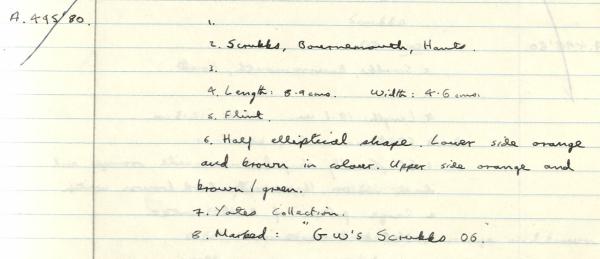 A.495'80.
1.
2. Scrubbs, Bournemouth, Hants.
3.
4. Length: 8.9cms. Width: 4.6cms.
5. Flint.
6. Half elliptical shape. Lower side orange
and brown in colour. Upper side orange and
brown/green.
7. Yates Collection.
8. Marked: "GW's Scrubbs 06.